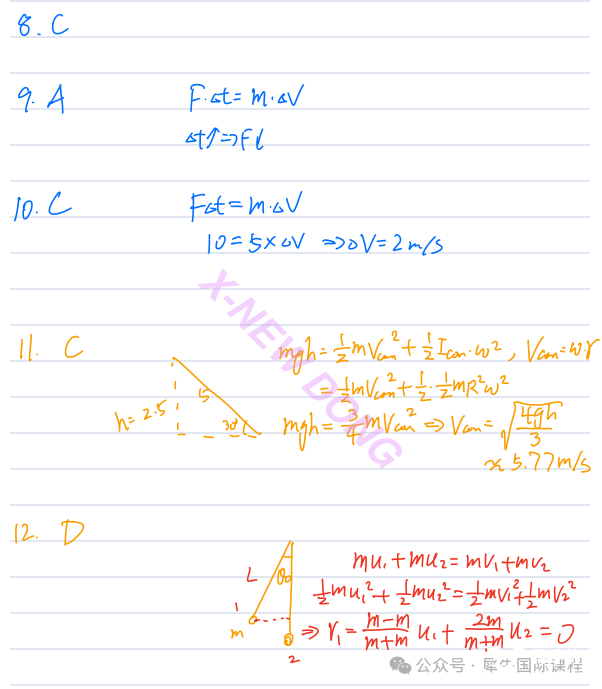 8. C
9. A F·Δt = m·ΔV
Δt↑ ⇒ F↓
10. C FΔt = m·ΔV
10 = 5×ΔV ⇒ ΔV = 2 m/s
X-NEW DONG
11. C mgh = 1/2 mVcom² + 1/2 Icom·ω² , Vcom = ω·r
= 1/2 mVcom² + 1/2 · 1/2 mR²ω²
h = 2.5 5 30° mgh = 3/4 mVcom² ⇒ Vcom = √(4gh/3)
≈ 5.77 m/s
12. D
mu₁ + mu₂ = mv₁ + mv₂
L θ₀ 1/2 mu₁² + 1/2 mu₂² = 1/2 mv₁² + 1/2 mv₂²
1 m 2 ⇒ v₁ = (m-m)/(m+m) u₁ + 2m/(m+m) u₂ = 0
公众号·犀牛国际课程